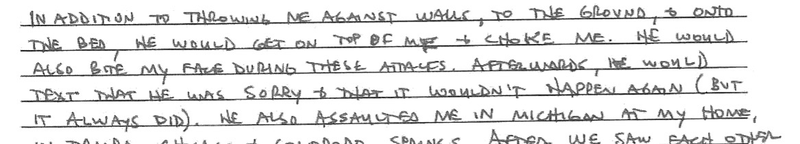 IN ADDITION TO THROWING ME AGAINST WALLS, TO THE GROUND, & ONTO
THE BED, HE WOULD GET ON TOP OF ME & CHOKE ME. HE WOULD
ALSO BITE MY FACE DURING THESE ATTACKS. AFTERWARDS, HE WOULD
TEXT THAT HE WAS SORRY & THAT IT WOULDN'T HAPPEN AGAIN (BUT
IT ALWAYS DID). HE ALSO ASSAULTED ME IN MICHIGAN AT MY HOME,
IN COLORADO SPRINGS. AFTER WE SAW EACH OTHER